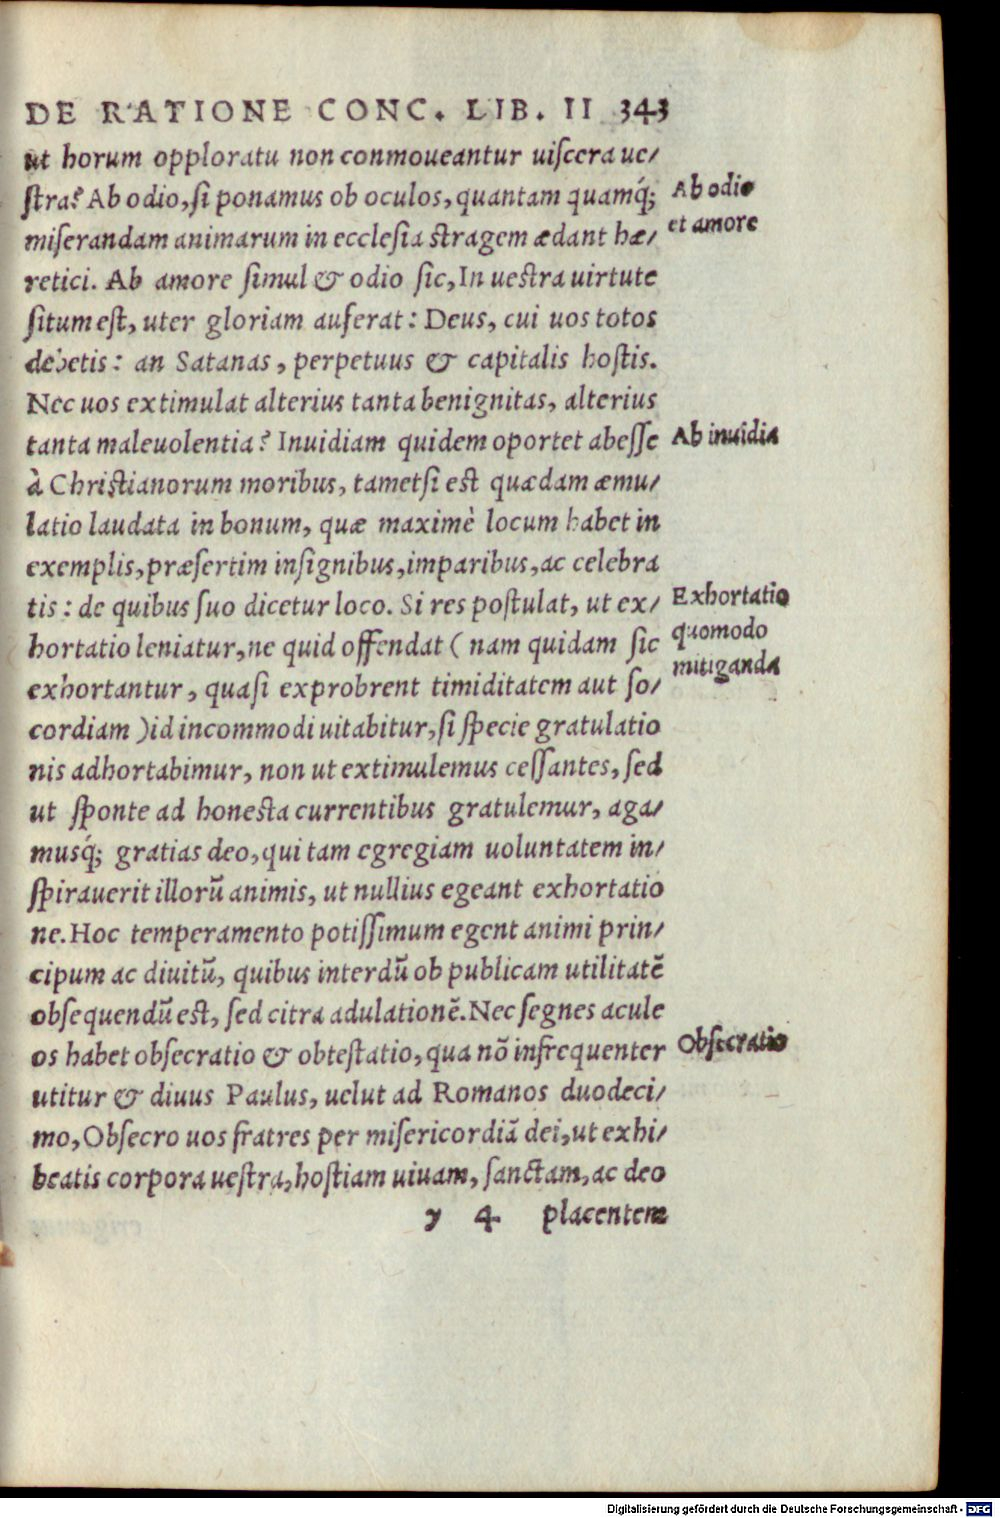 DE RATIONE CONC. LIB. II 343
ut horum opploratu non conmoueantur uiſcera ue/
ſtra? Ab odio, ſi ponamus ob oculos, quantam quamq́;
miſerandam animarum in eccleſia ſtragem ædant hæ/
retici. Ab amore ſimul & odio ſic, In ueſtra uirtute
ſitum eſt, uter gloriam auferat: Deus, cui uos totos
debetis: an Satanas, perpetuus & capitalis hoſtis.
Nec uos extimulat alterius tanta benignitas, alterius
tanta maleuolentia? Inuidiam quidem oportet abeſſe
à Chriſtianorum moribus, tametſi eſt quædam æmu/
latio laudata in bonum, quæ maximè locum habet in
exemplis, præſertim inſignibus, imparibus, ac celebra
tis: de quibus ſuo dicetur loco. Si res poſtulat, ut ex/
hortatio leniatur, ne quid offendat ( nam quidam ſic
exhortantur, quaſi exprobrent timiditatem aut ſo/
cordiam ) id incommodi uitabitur, ſi ſpecie gratulatio
nis adhortabimur, non ut extimulemus ceſſantes, ſed
ut ſponte ad honeſta currentibus gratulemur, aga/
musq́; gratias deo, qui tam egregiam uoluntatem in/
ſpirauerit illorū animis, ut nullius egeant exhortatio
ne. Hoc temperamento potiſſimum egent animi prin/
cipum ac diuitū, quibus interdū ob publicam utilitatē
obſequendū eſt, ſed citra adulationē. Nec ſegnes acule
os habet obſecratio & obteſtatio, qua nō infrequenter
utitur & diuus Paulus, uelut ad Romanos duodeci/
mo, Obſecro uos fratres per miſericordiā dei, ut exhi/
beatis corpora ueſtra, hoſtiam uiuam, ſanctam, ac deo
y 4 placentem
Ab odio
et amore
Ab inuidia
Exhortatio
quomodo
mitiganda
Obſecratio
Digitalisierung gefördert durch die Deutsche Forschungsgemeinschaft - DFG